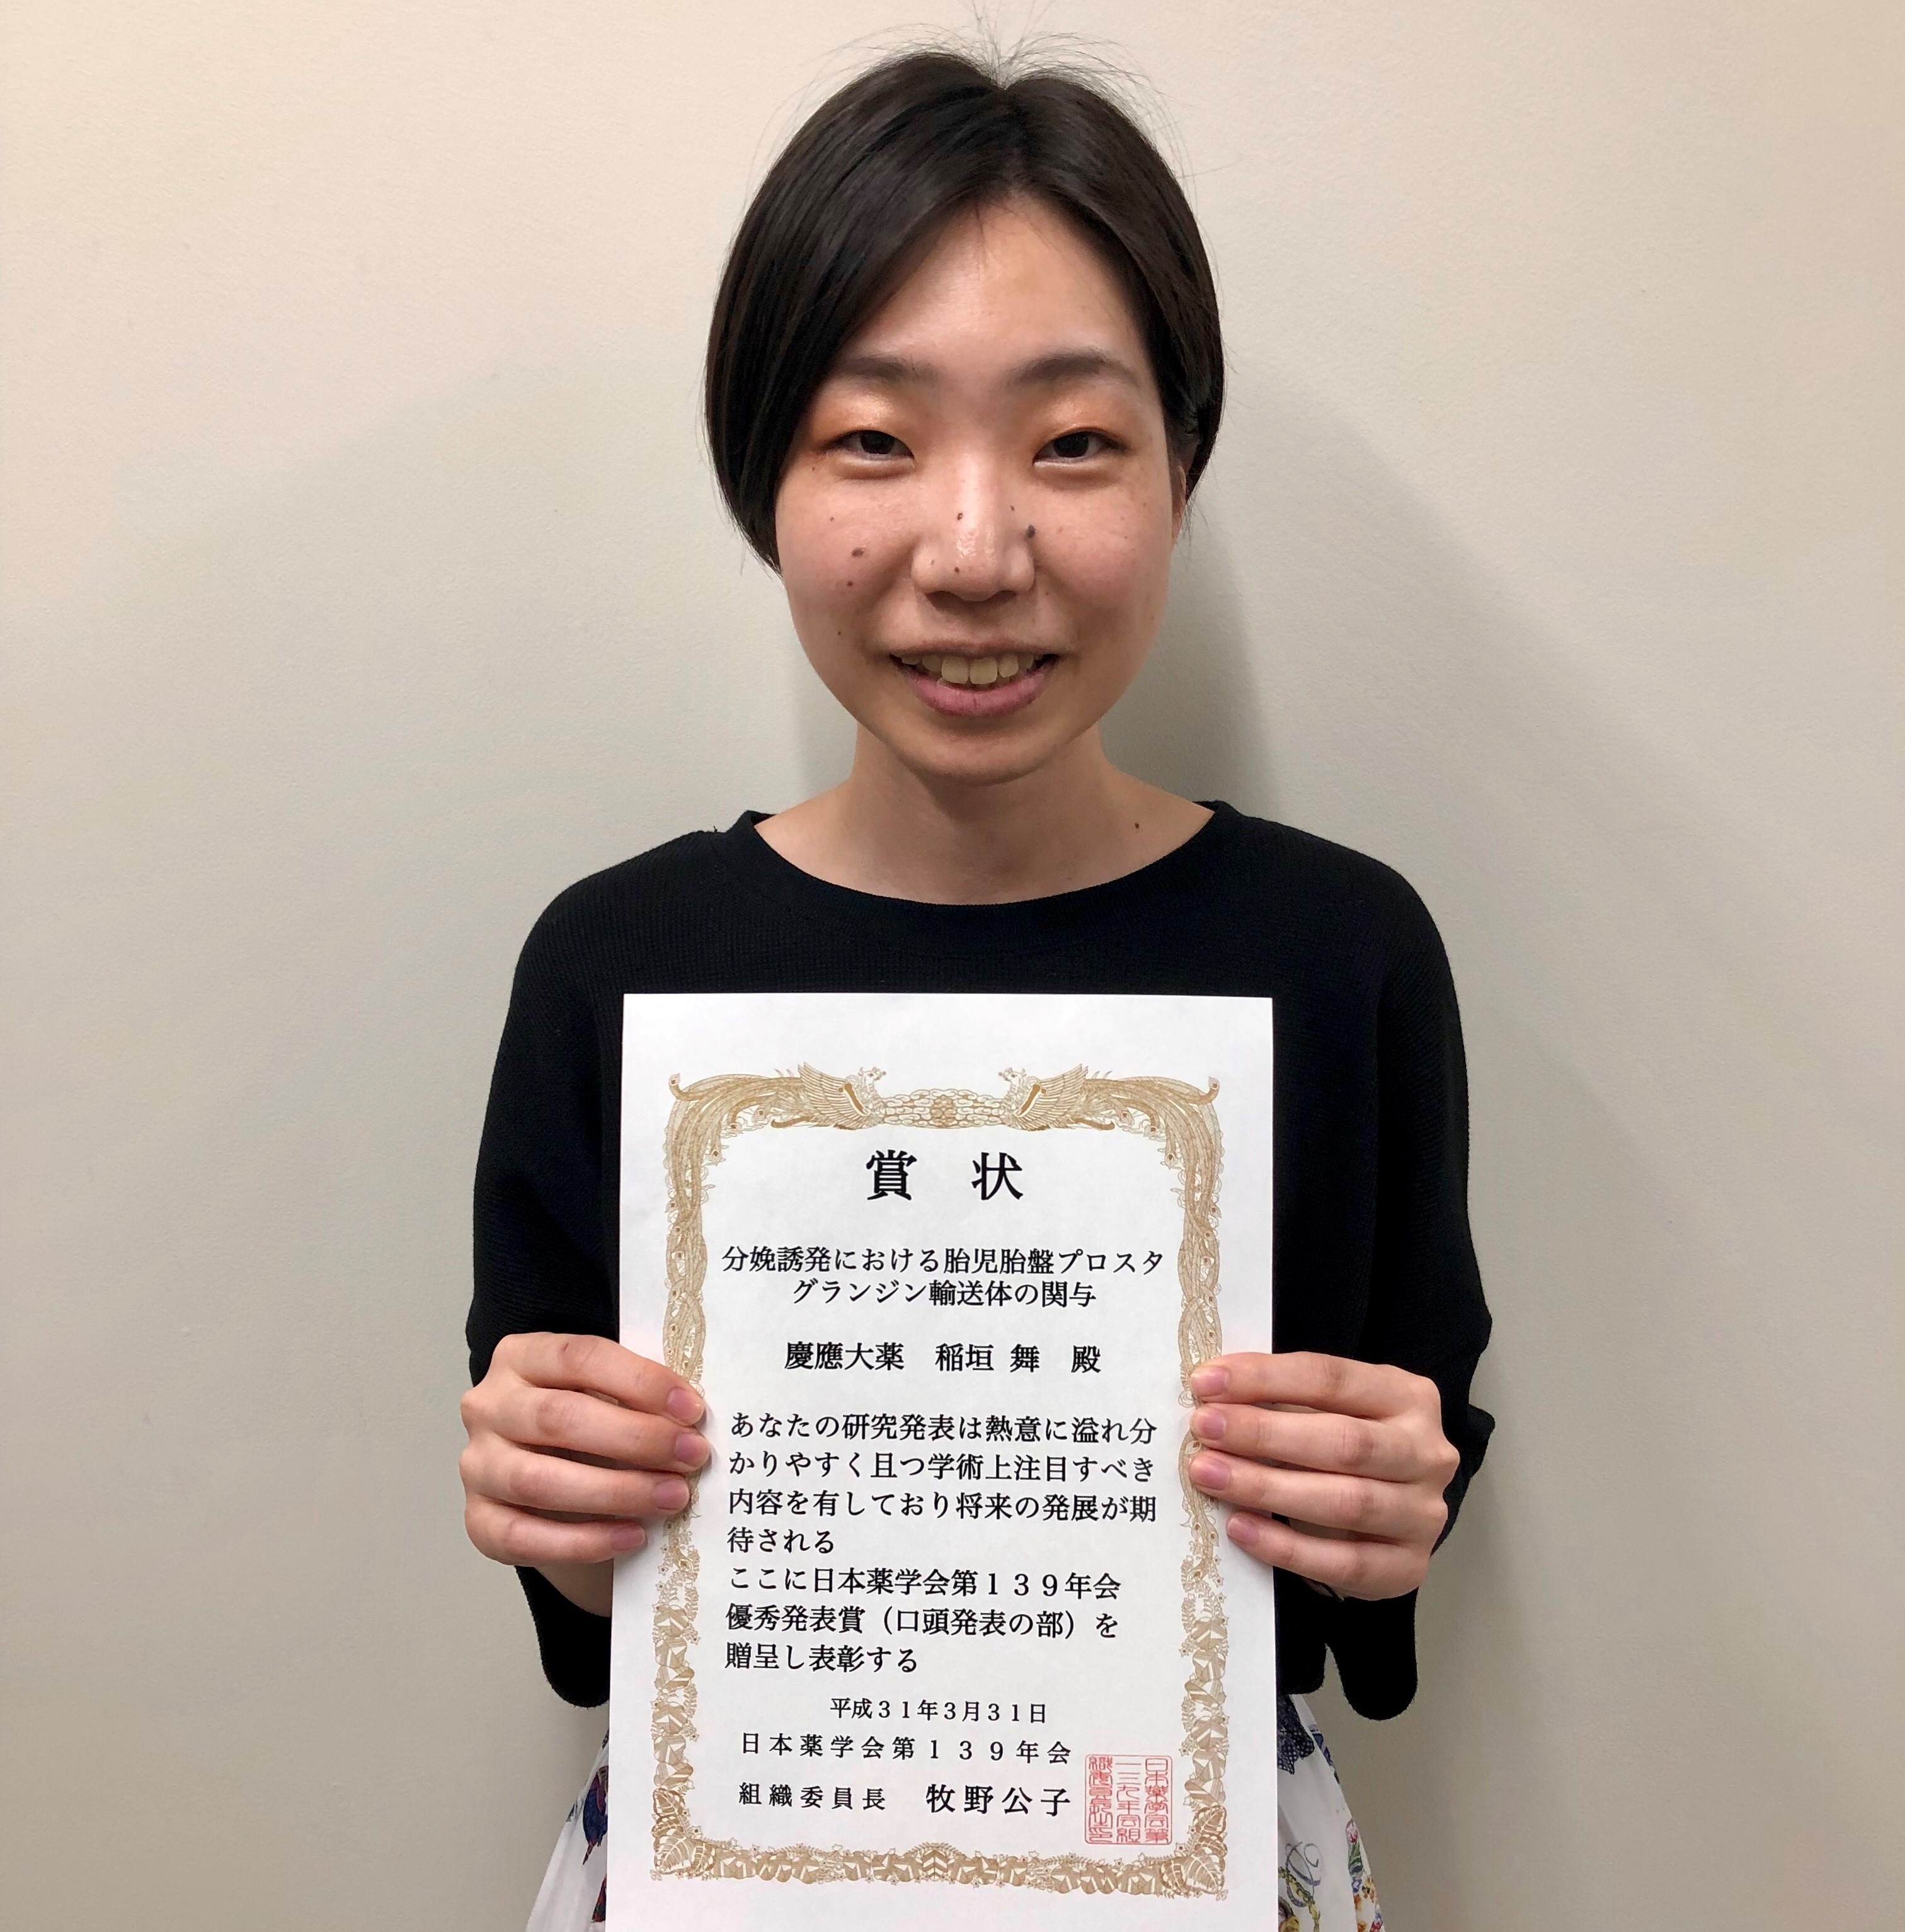 賞 状
分娩誘発における胎児胎盤プロスタ
グランジン輸送体の関与
慶應大薬 稲垣 舞 殿
あなたの研究発表は熱意に溢れ分
かりやすく且つ学術上注目すべき
内容を有しており将来の発展が期
待される
ここに日本薬学会第139年会
優秀発表賞（口頭発表の部）を
贈呈し表彰する
平成31年3月31日
日本薬学会第139年会
組織委員長 牧野公子